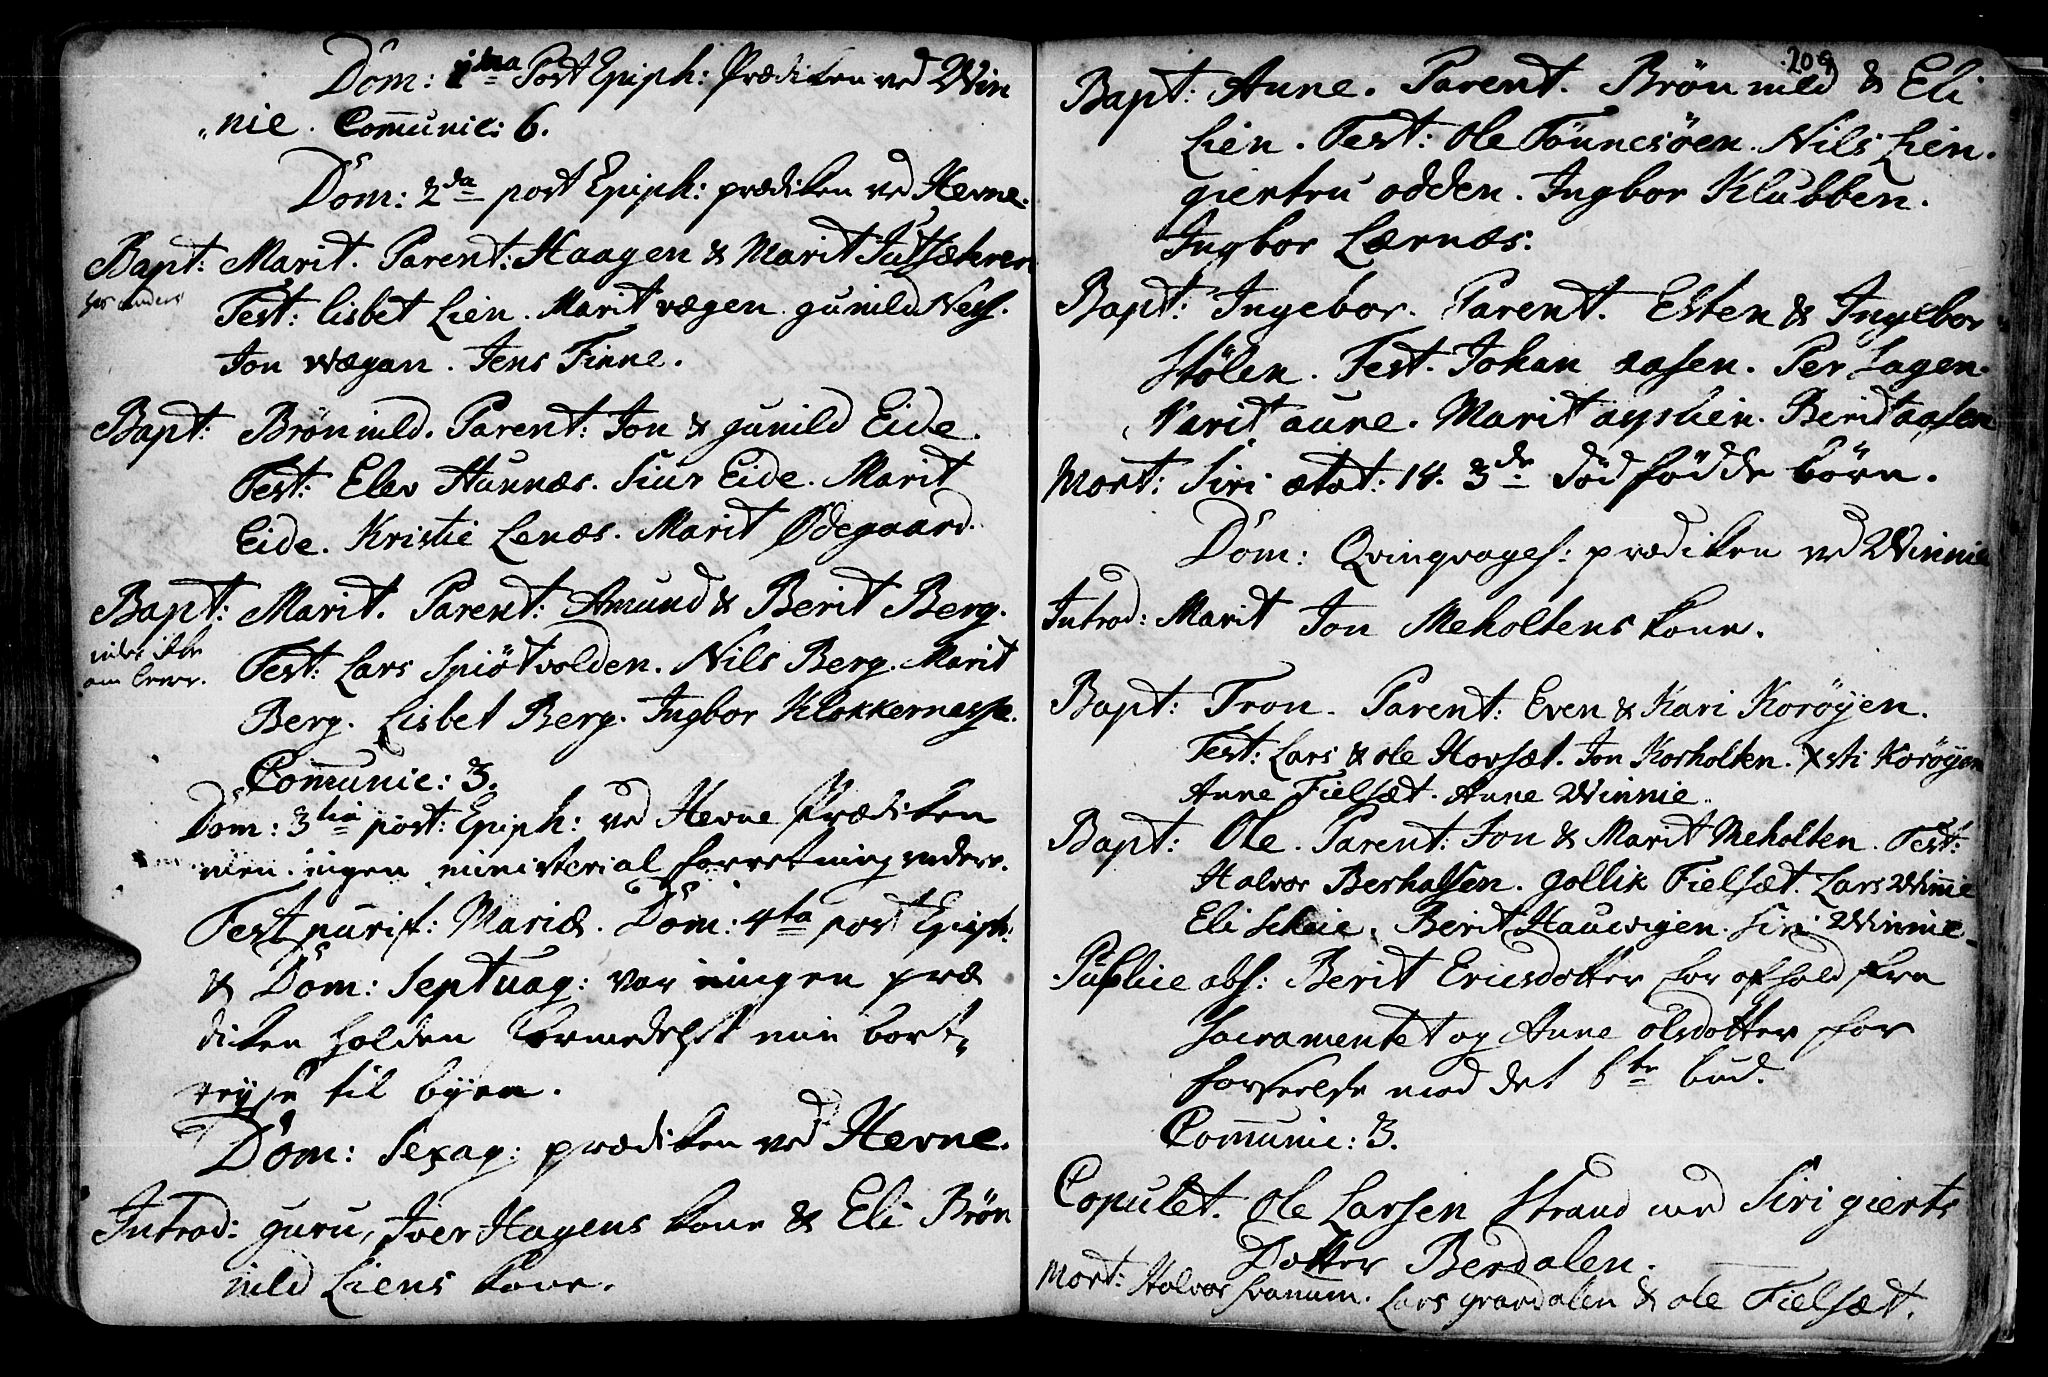 Dom: 1ma Post Epiph: Prædiken ved Win
„nie. Com̄unic: 6.
Dom: 2da post Epiph: prædiken ved Hevne.
Bapt: Marit. Parent: Haagen & Marit
Test: Lisbet Lien. Marit vægen. gunild Ness.
Jon wægan. Jens Finne.
Bapt: Brönnild. Parent: Jon & gunild Eide.
Test: Elev Hunnæs. Siur Eide. Marit
Eide. Kristie Lenæs. Marit Ødegaard.
Bapt: Marit. Parent: Amund & Berit Berg.
Test: Lars Spiötvolden. Nils Berg. Marit
Berg. Lisbet Berg. Ingbor Klokkernesse.
Com̄unic: 3.
Dom: 3tia post: Epiph: ved Hevne Prædiken
men ingen ministerial forretning videre.
Fest purif: Mariæ. Dom: 4ta post Epiph:
& Dom: Septuag: var ingen præ
diken holden formedelst min bort„
reyse til byen.
Dom: Sexag: prædiken ved Hevne.
Introd: guru, Iver Hagens kone & Eli Brön
nild Liens kone.
209
Bapt: Anne. Parent. Brönnild & Eli
Lien. Test: Ole Tönnesöen. Nils Lien.
giertru odden. Ingbor Klubben.
Ingbor Lærnæs.
Bapt: Ingebor. Parent. Esten & Ingebor
Stölen. Test. Johan aasen. Per Hagen.
Marit aune. Marit Berit aasen
Mort: Siri ætat: 14. 3de död födde börn.
Dom: Qvinqvages: prædiken ved Winnie
Introd: Marit Jon Meholtens kone.
Bapt: Tron. Parent: Even & Kari Koröyen.
Test: Lars & ole Hovsæt. Jon Korholten. Xsti Koröyen
Anne Fielsæt. Anne Winnie.
Bapt: Ole. Parent: Jon & Marit Meholten. Test:
Halvor Berhalsen. gollik Fielsæt. Lars Winnie
Eli Skeie. Berit Hauwigen. Siri Winnie.
Publice abs: Berit Ericsdotter for afhold fra
Sacramentet og Anne olsdotter for
forseelse mod det 6te bud.
Com̄unic: 3.
Copulet. Ole Larsen Strand med Siri gierts
Dotter Berdalen.
Mort: Halvor Svanum. Lars grardalen & ole Fielsæt.